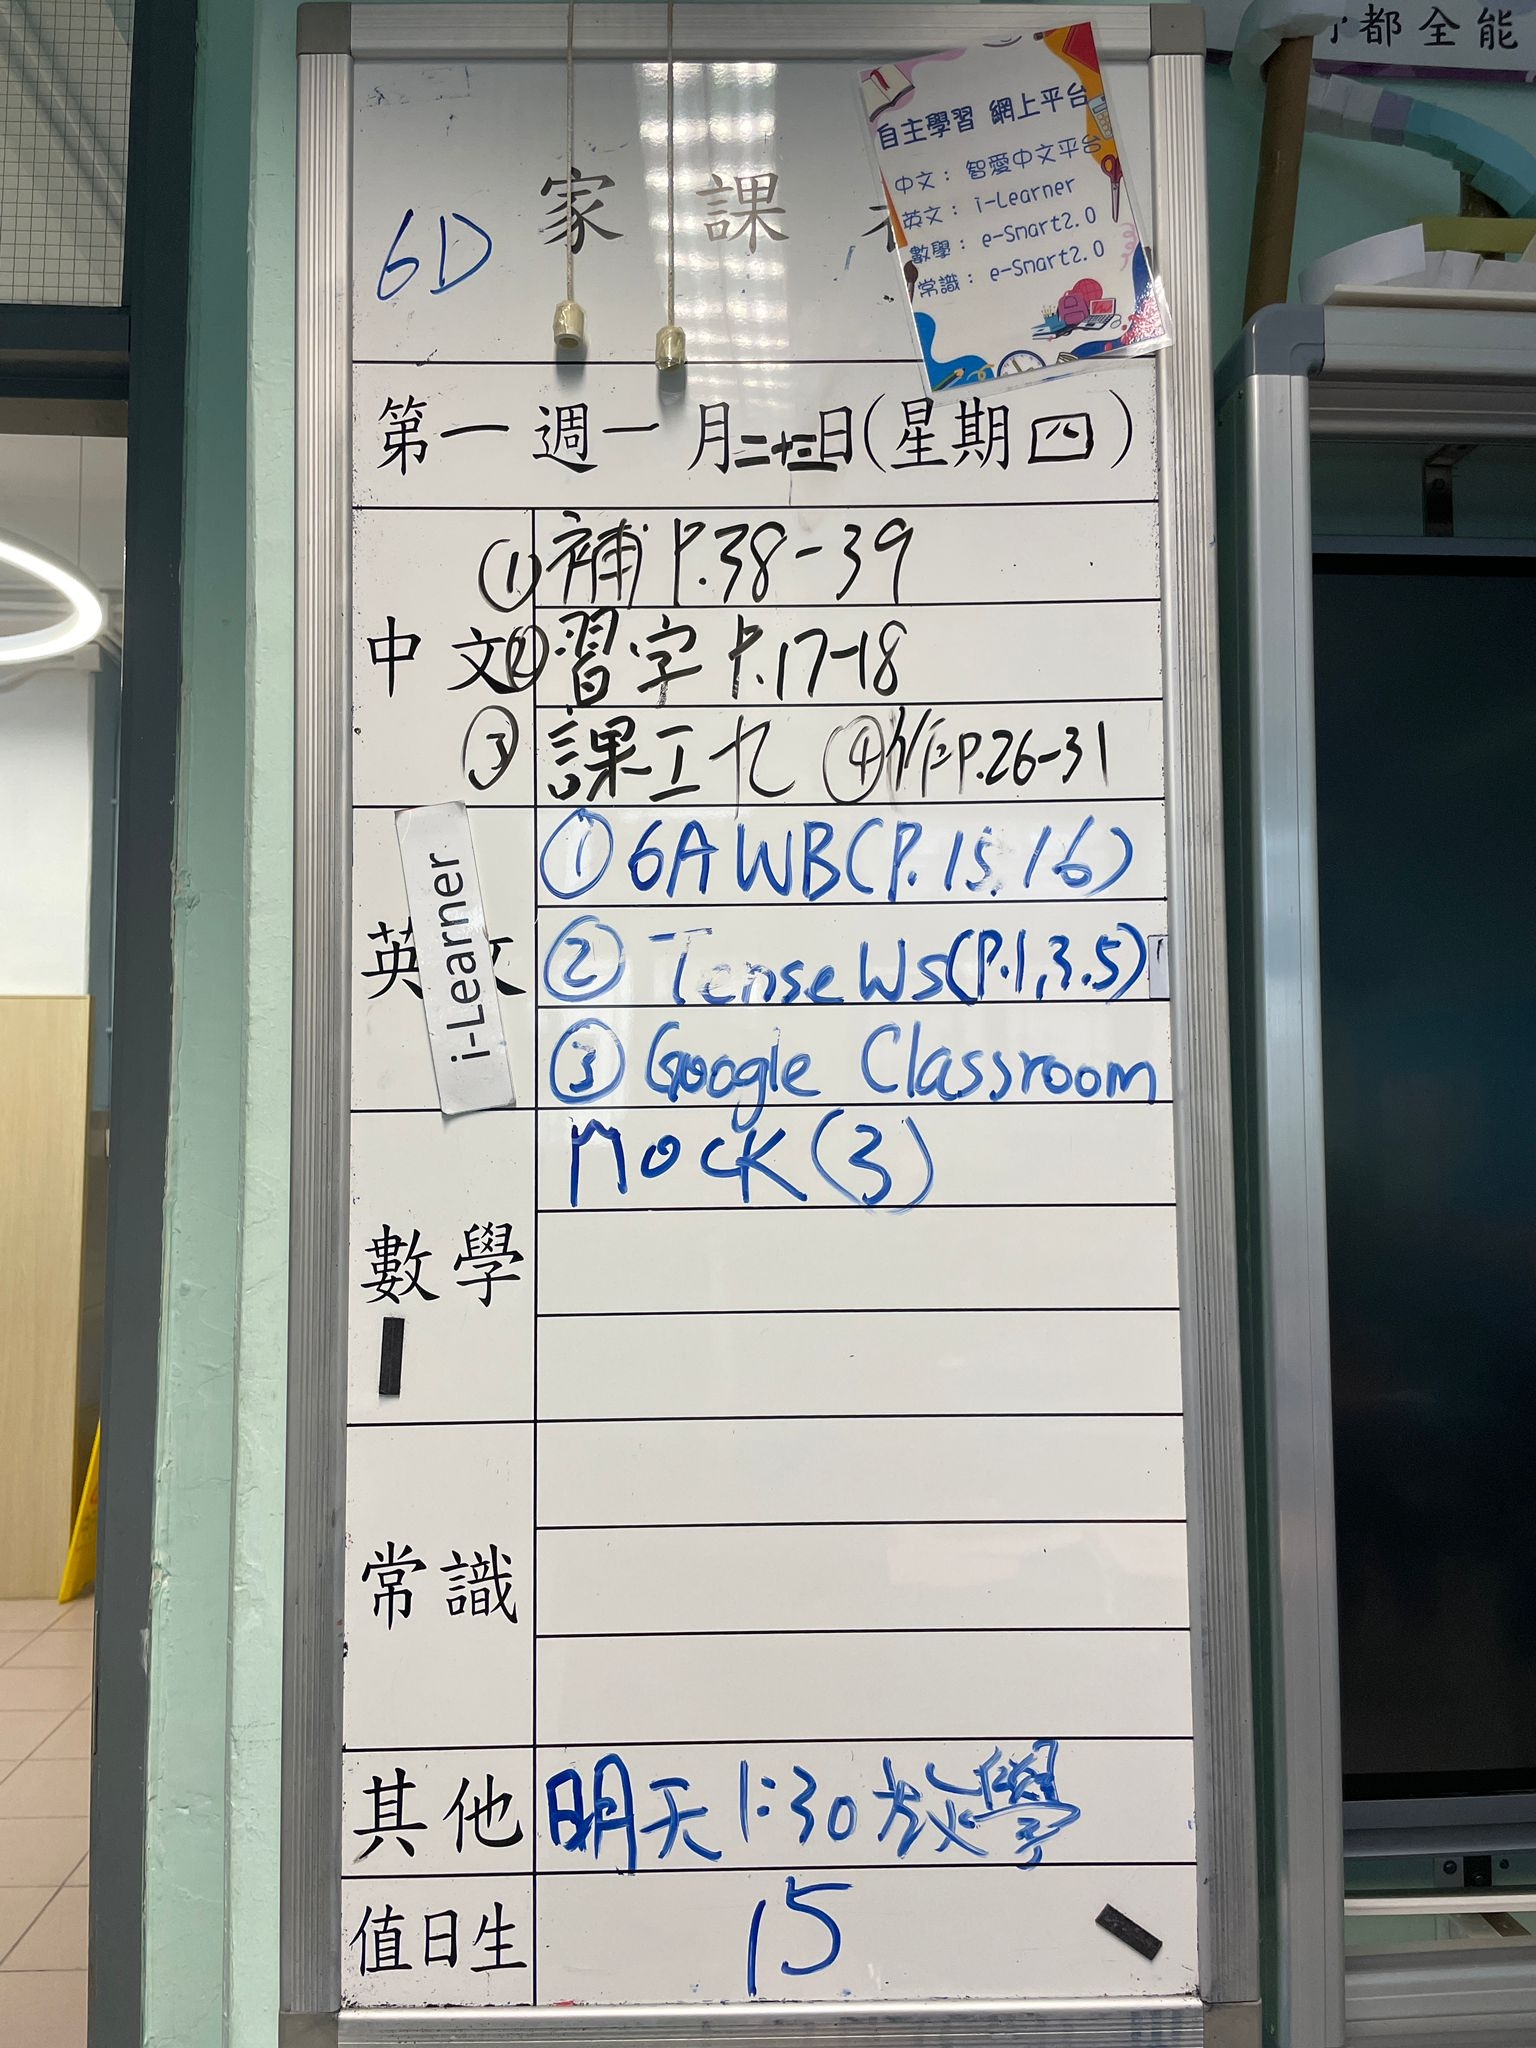 都全能
自主學習 網上平台
中文：智愛中文平台
英文：i-Learner
數學：e-Smart2.0
常識：e-Smart2.0
6D
家課
第一週一月二十三日(星期四)
中文
①補 P.38-39
②習字 P.17-18
③課工九 ④作P.26-31
英文
i-Learner
①6A WB(P.15,16)
②Tense WS(P.1,3.5)
③Google Classroom
數學
MOCK(3)
常識
其他
明天1:30放學
值日生
15